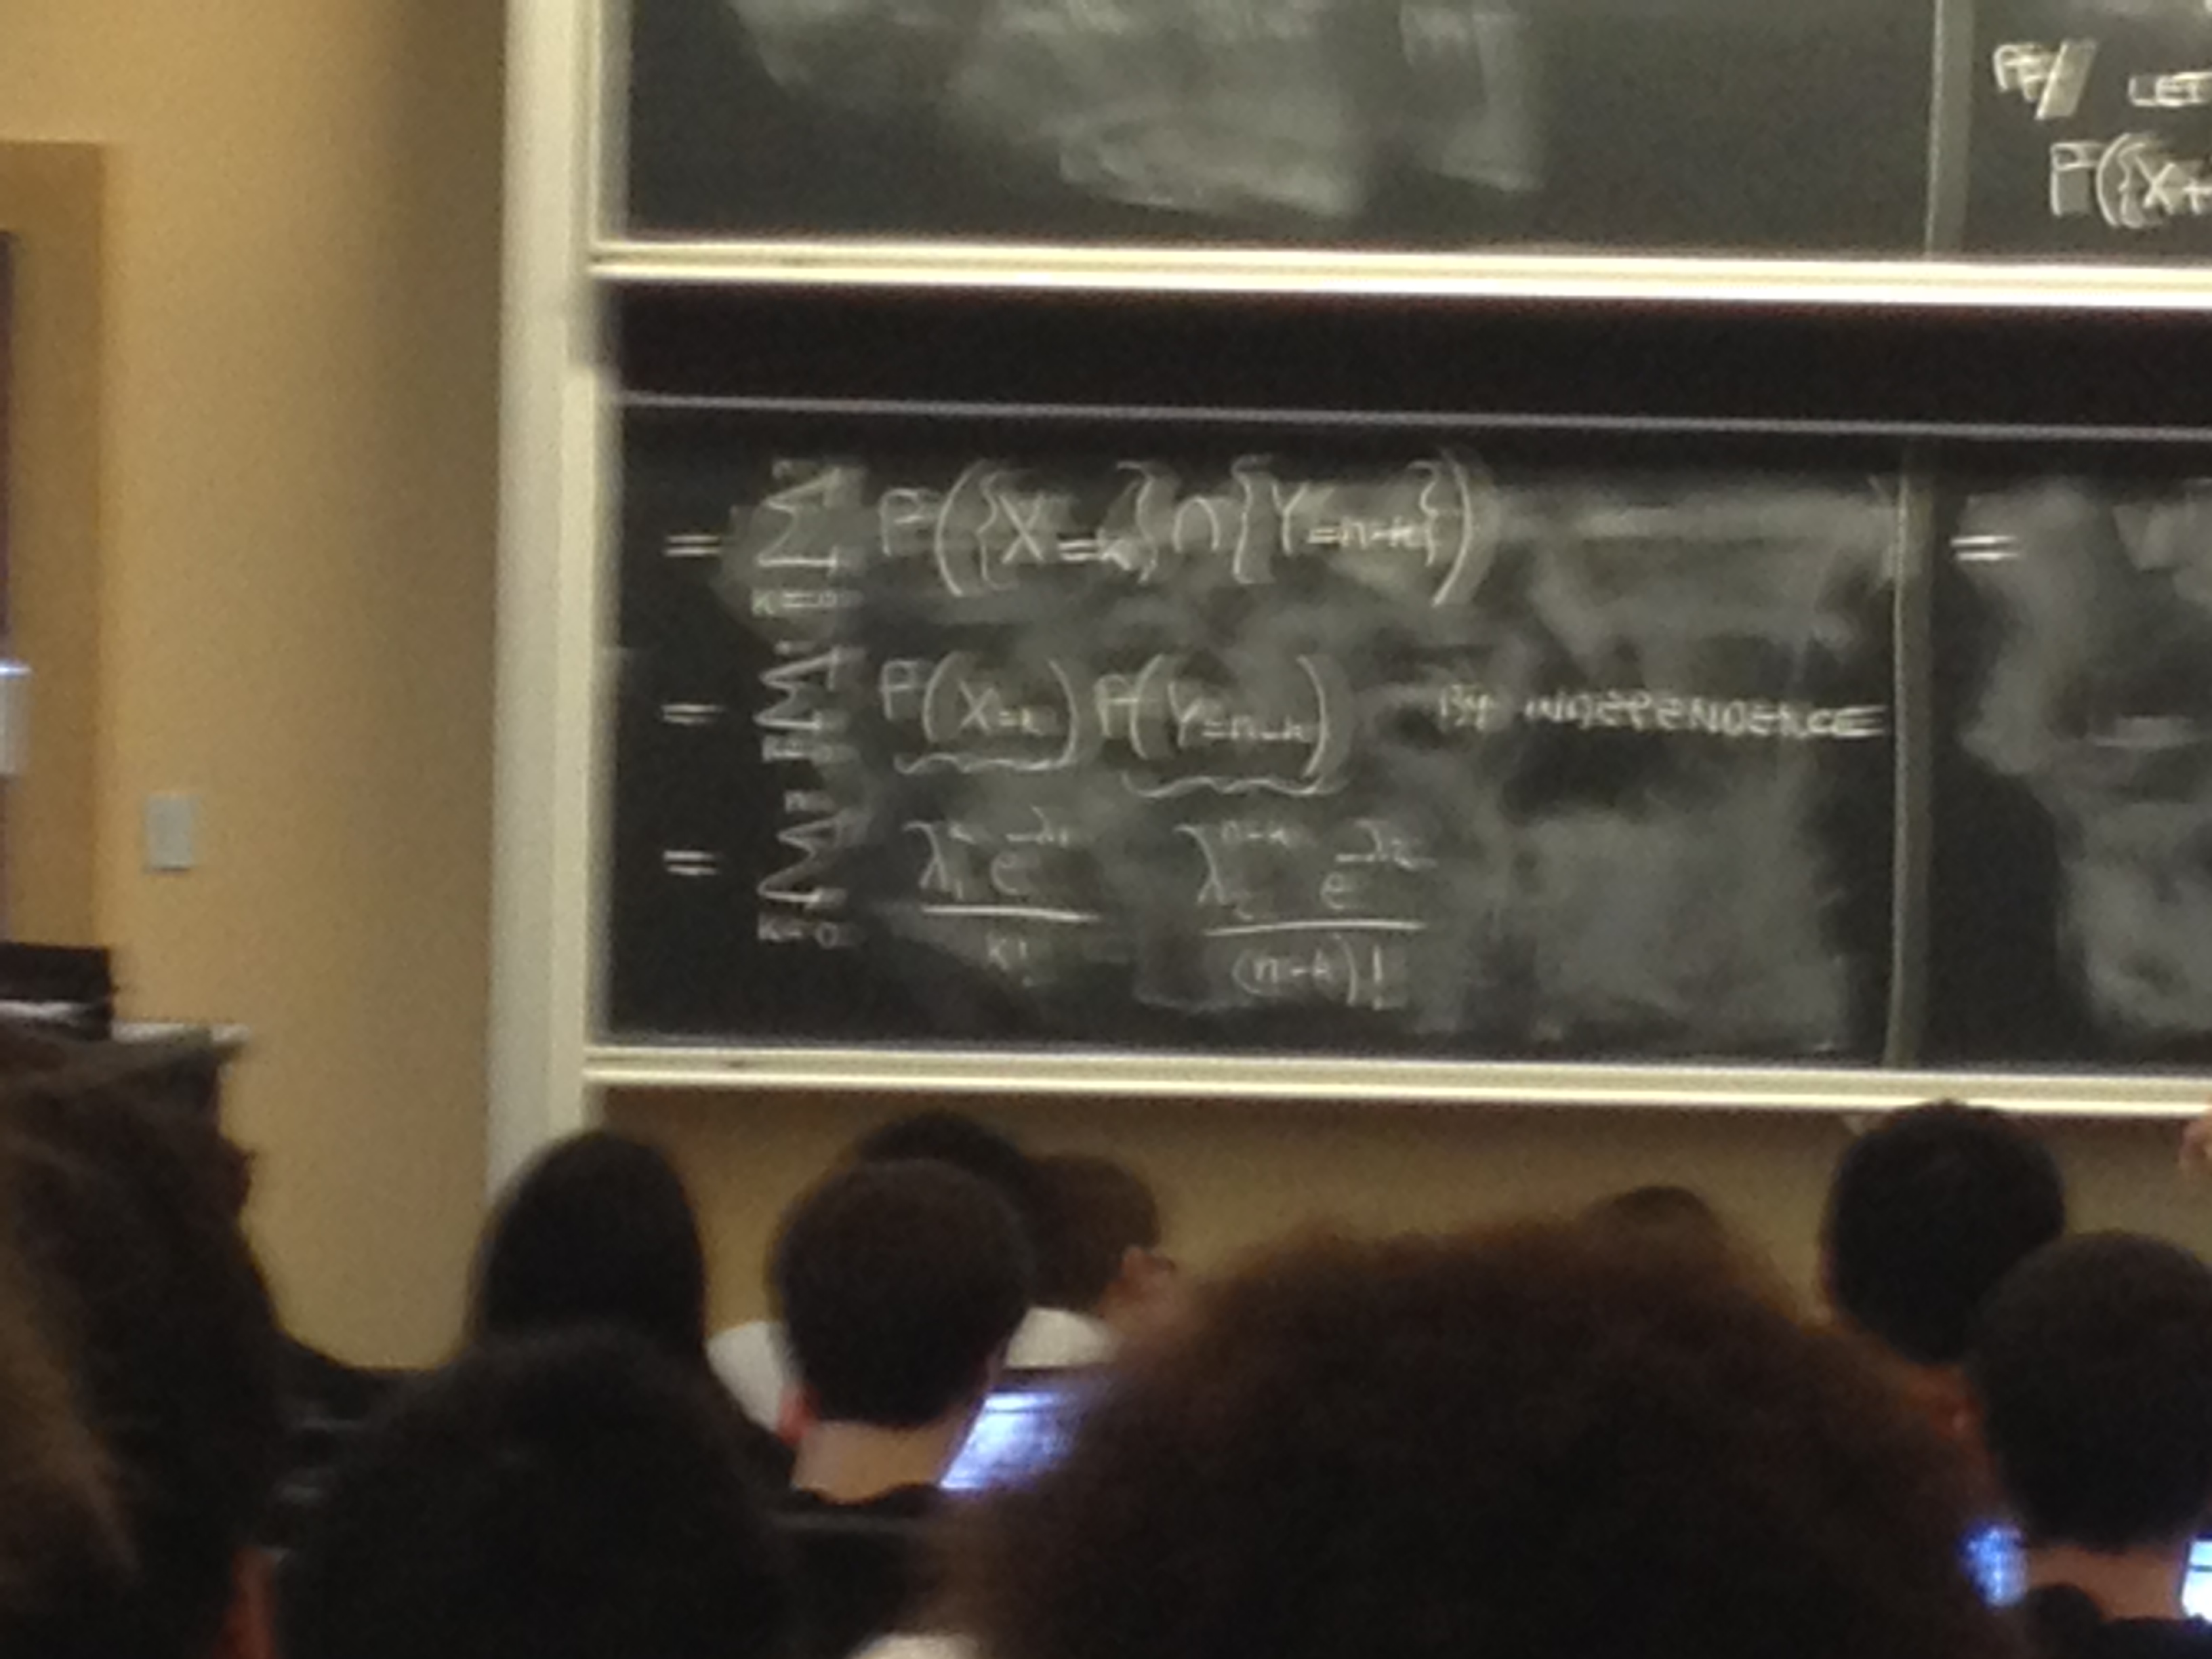 PF/ LET
P({X+
= Σ P({X=k}∩{Y=n-k})
k=0
= Σ P(X=k) P(Y=n-k) BY INDEPENDENCE
k=0
= Σ λ₁ᵏ e^-λ₁ / k! λ₂ⁿ⁻ᵏ e^-λ₂ / (n-k)!
k=0
=